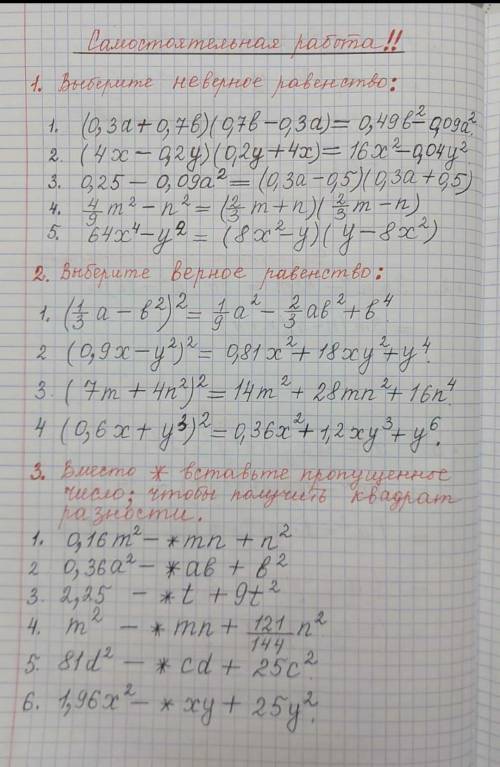 Самостоятельная работа!!
1. Выберите неверное равенство:
1. (0,3a+0,7в)(0,7в-0,3a)=0,49в²-0,09a².
2. (4x-0,2y)(0,2y+4x)=16x²-0,04y²
3. 0,25-0,09a²=(0,3a-0,5)(0,3a+0,5)
4. 4/9 m²-n²=(2/3 m+n)(2/3 m-n)
5. 64x⁴-y²=(8x²-y)(y-8x²)
2. Выберите верное равенство:
1. (1/3 a-в²)²=1/9 a²-2/3 aв²+в⁴
2 (0,9x-y²)²=0,81x²+18xy²+y⁴.
3. (7m+4n²)²=14m²+28mn²+16n⁴.
4 (0,6x+y³)²=0,36x²+1,2xy³+y⁶.
3. Вместо * вставьте пропущенное
число, чтобы получить квадрат
разности.
1. 0,16m²-*mn+n²
2 0,36a²-*aв+в²
3. 2,25-*t+9t²
4. m²-*mn+121/144 n²
5. 81d²-*cd+25c².
6. 1,96x²-*xy+25y².